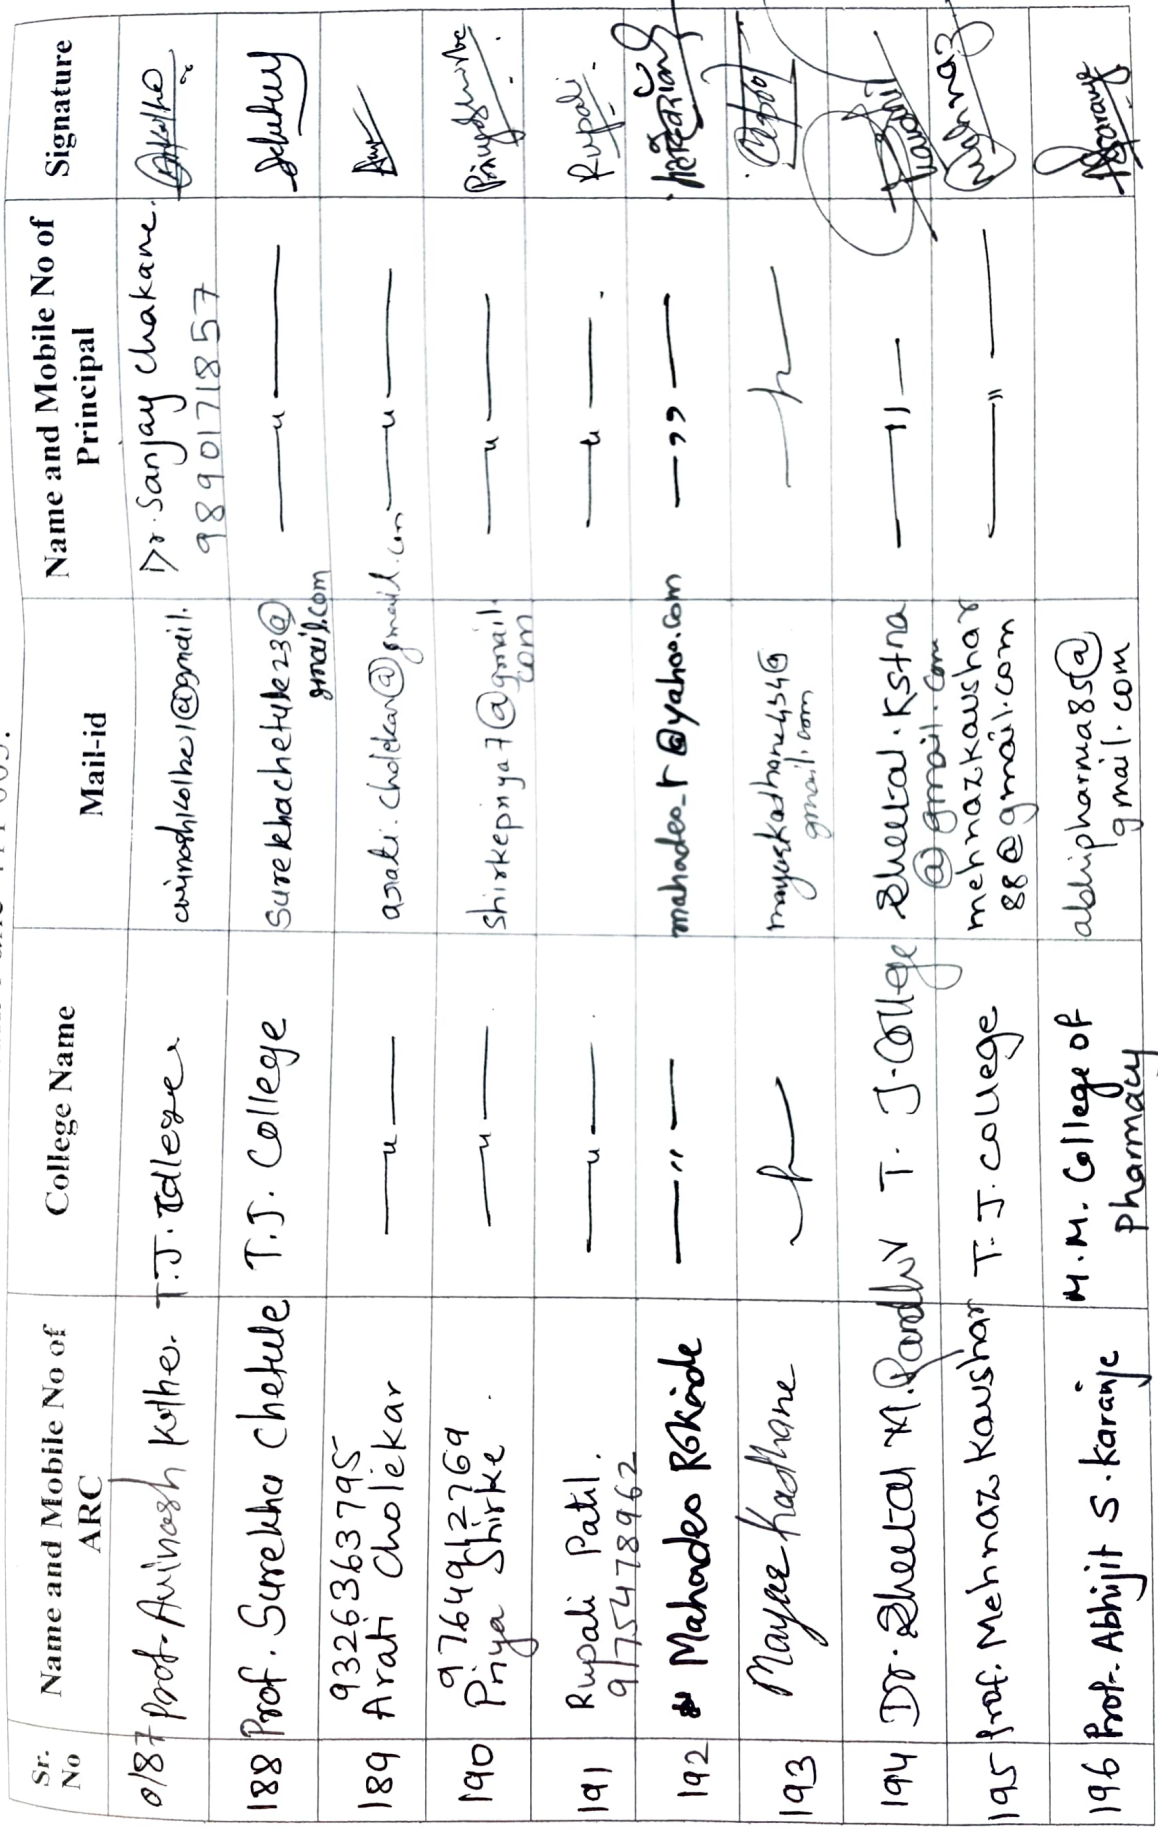 Sr. No
Name and Mobile No of ARC
College Name
Mail-id
Name and Mobile No of Principal
Signature
0187 Prof. Avinash Kolhe. T.J. College avinashkolhe1@gmail. Dr. Sanjay Chakane.
9890171857
188 Prof. Surekha Chetule T.J. College surekhachetule23@
gmail.com
—〃— Schetule
189 9326363795
Arati Cholekar —〃— arati.cholekar@gmail.com —〃—
190 9764912769
Priya Shirke —〃— shirkepriya7@gmail.
com
—〃— Priya Shirke
191 Rupali Patil.
9175478962
—〃— —〃— Rupali
192 Mahadeo Rokade —〃— mahadeo_r@yahoo.com —〃—
193 Mayur Kadhane —〃— mayurkadhane454@
gmail.com
—〃—
194 Dr. Sheetal M. Pardhi T. J. College Sheetal.Kstna
@gmail.com
—〃—
195 Prof. Mehnaz Kaushar T. J. College mehnazkaushar
88@gmail.com
—〃— Mehnaz
196 Prof. Abhijit S. Karanje M.M. College of
Pharmacy
abhipharma85@
gmail.com